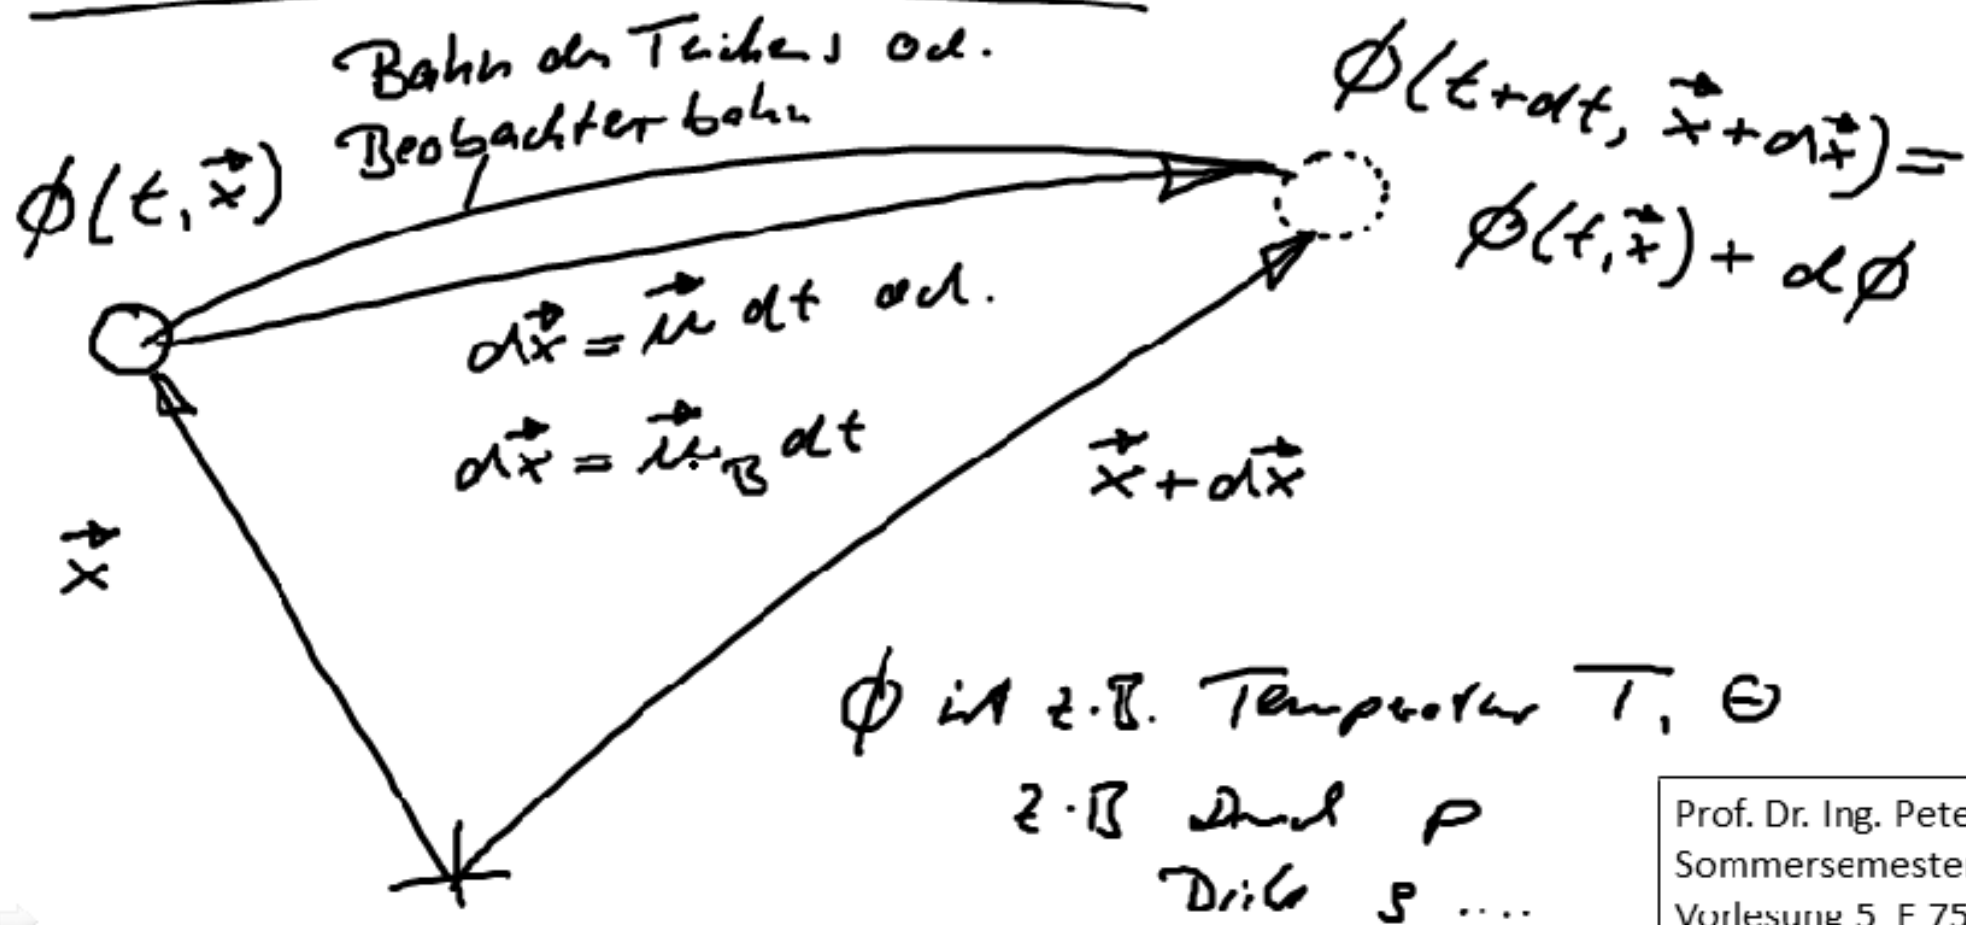 Bahn des Teilchens od.
Beobachterbahn
ϕ(t, x⃗)
ϕ(t+dt, x⃗+dx⃗) =
ϕ(t, x⃗) + dϕ
dx⃗ = u⃗ dt od.
dx⃗ = u⃗_B dt
x⃗
x⃗+dx⃗
ϕ ist z.B. Temperatur T, Θ
z.B Druck p
Dichte ρ ....
Prof. Dr. Ing. Pete
Sommersemester
Vorlesung 5 F 75